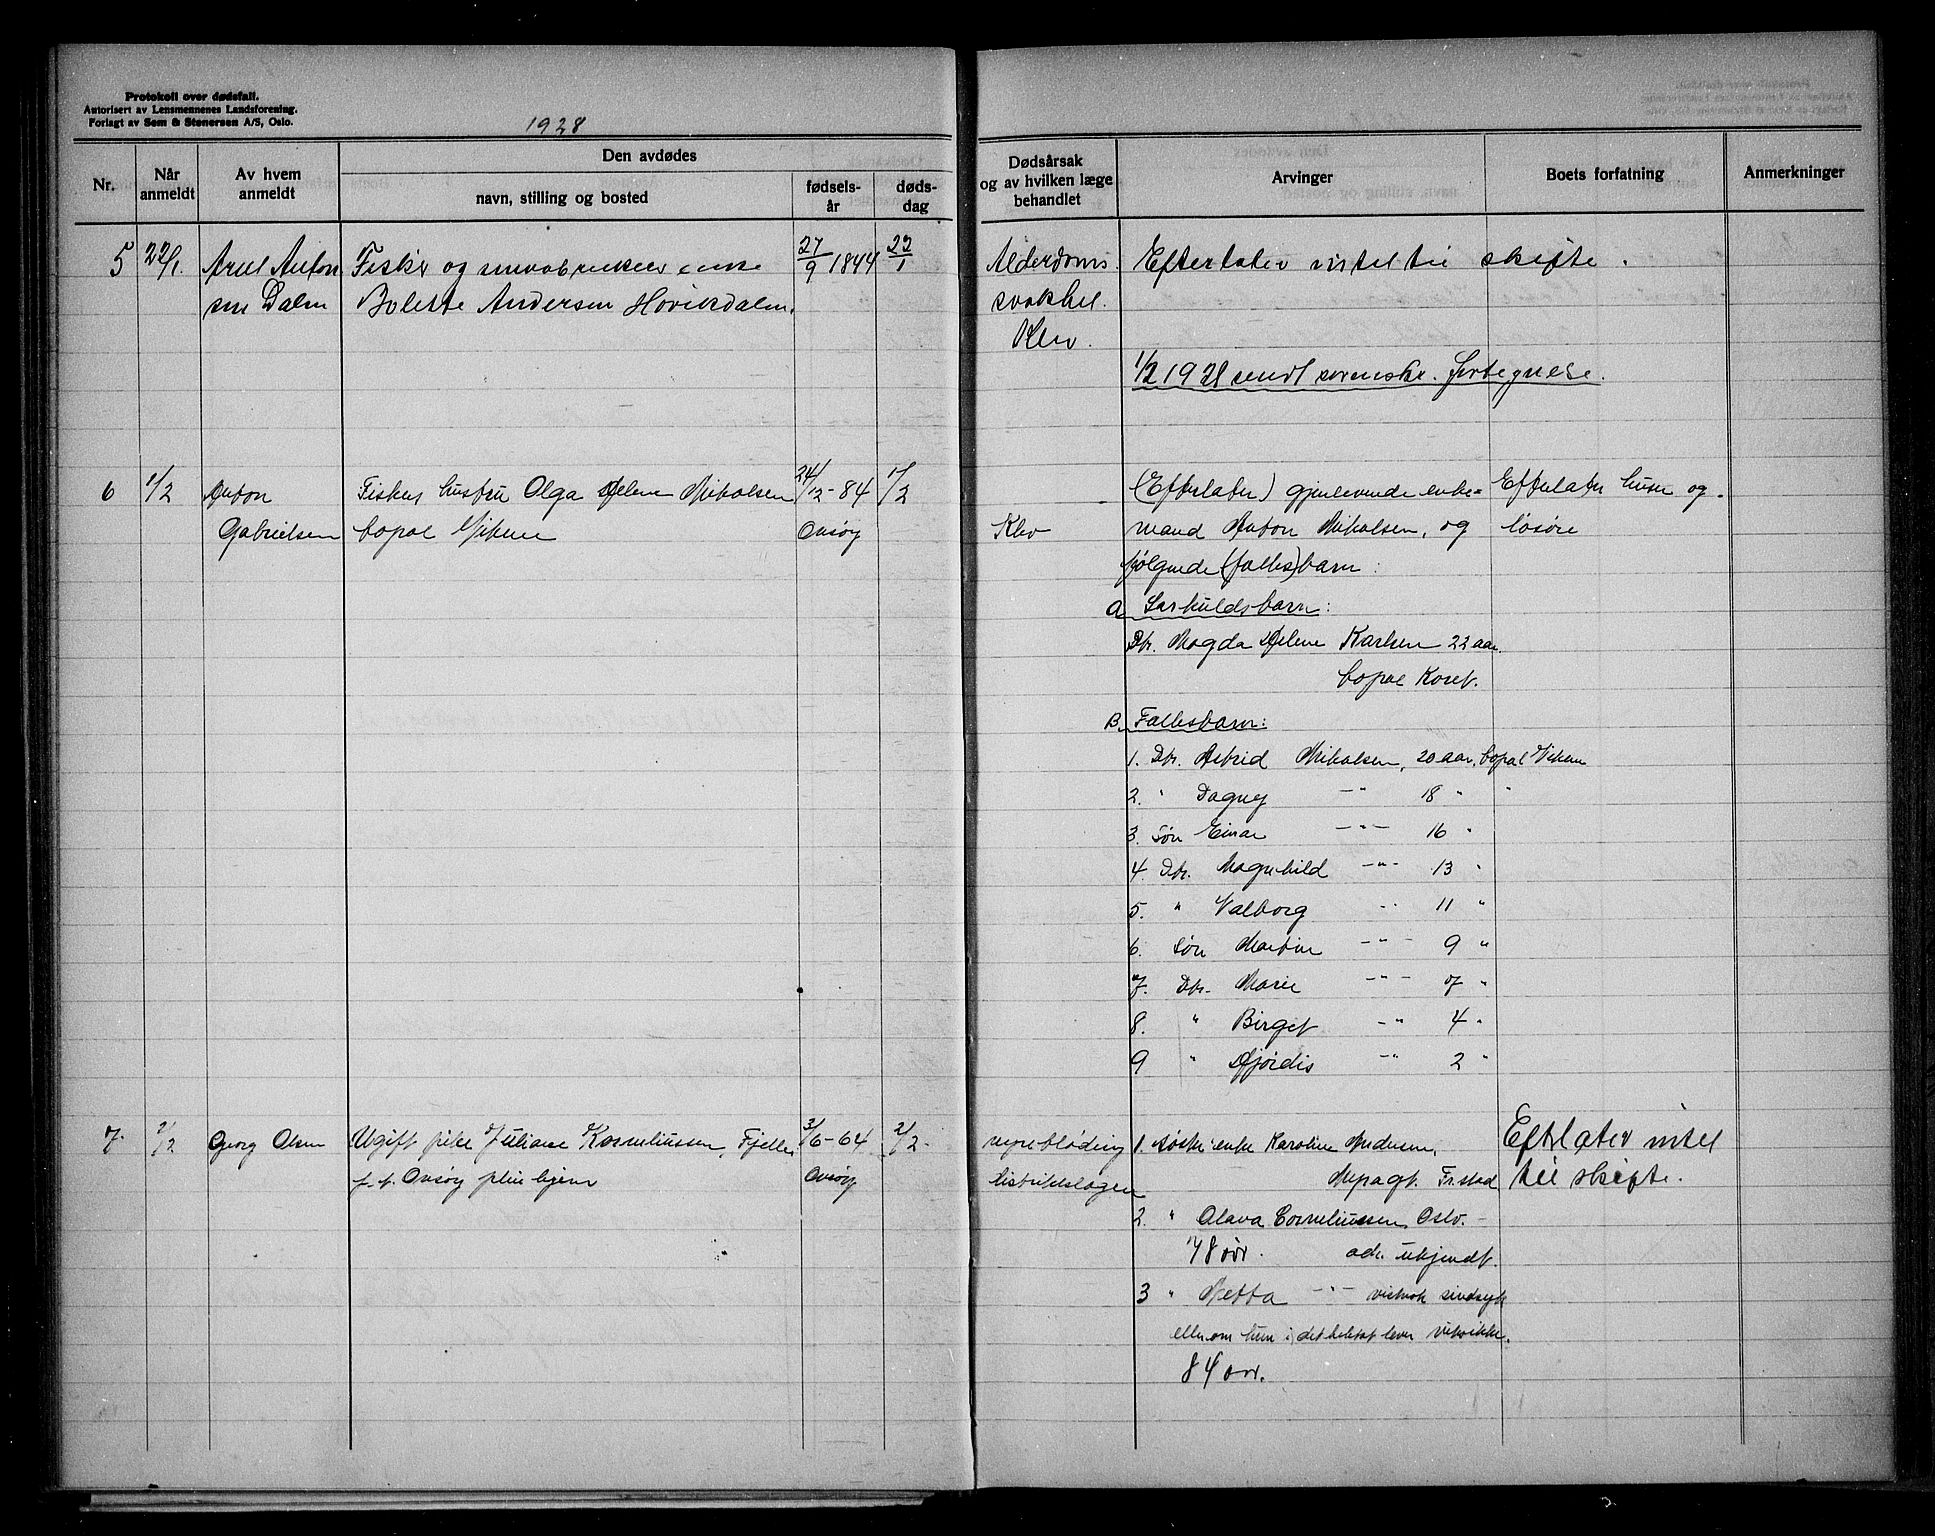 Protokoll over dødsfall.
Autorisert av Lensmennenes Landsforening.
Forlagt av Sem & Stenersen A/S, Oslo.
1928
Nr.
Når anmeldt
Av hvem anmeldt
Den avdødes
navn, stilling og bosted
fødsels-år
døds-dag
Dødsårsak og av hvilken læge behandlet
Arvinger
Boets forfatning
Anmerkninger
5 22/1. Anton
sen Dalen
Fisker og enke
Bolette Andersen Hovikdalen.
27/9 1844 22/1
Alderdoms
svakhet.
Klev.
Efterlater intet til skifte.
1/2 1928 sendt fortegnelse.
6 1/2 Anton
Gabrielsen
Fiskers hustru Olga Helene Mikalsen
bopæl Viken
24/12-84 1/2
Onsøy
Klev
(Efterlater) gjenlevende enke=
mand Anton Mikalsen, og
følgende (fælles)barn:
A Særkuldsbarn:
Dtr. Magda Helene Karlsen 22 aar.
bopæl
B. Fællesbarn:
1. Dtr. Astrid Mikalsen, 20 aar, bopæl Viken
2. " Dagny -"- 18 " "
3. Søn Einar -"- 16 "
4. Dtr. Magnhild -"- 13 "
5. " Valborg -"- 11 "
6. Søn Martin -"- 9 "
7. Dtr. Marie -"- 7 "
8. " Birgit -"- 4 "
9 " Hjördis -"- 2 "
Efterlater huse og
løsøre
7 2/2 Georg Olsen
Ugift pike Juliane Korneliussen, Fjelle
f. t. Onsøy pleiehjem
3/6-64 2/2-
Onsøy
nyreblødning
distriktslægen
1. søster enke Karoline Andersen,
Fr.stad
2 " Olava Corneliussen, Oslo.-
78 år. adr. ukjendt.
3 " Netta -"- sindsyk
eller om hun i det hele tat lever vites ikke.
84 år.
Efterlater intet
til skifte.